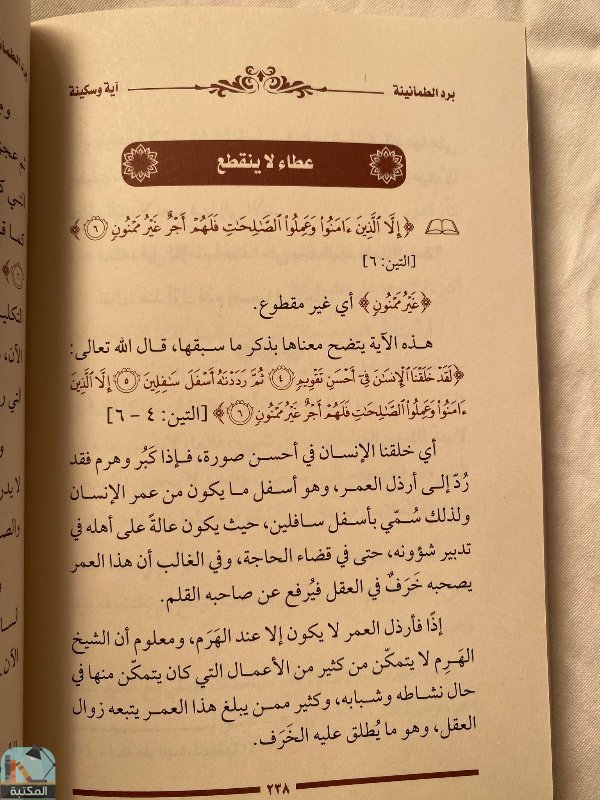 برد الطمأنينة
آية وسكينة
عطاء لا ينقطع
﴿إِلَّا ٱلَّذِينَ ءَامَنُوا۟ وَعَمِلُوا۟ ٱلصَّـٰلِحَـٰتِ فَلَهُمْ أَجْرٌ غَيْرُ مَمْنُونٍ ٦﴾
[التين: ٦]
﴿غَيْرُ مَمْنُونٍ﴾ أي غير مقطوع.
هذه الآية يتضح معناها بذكر ما سبقها، قال الله تعالى:
﴿لَقَدْ خَلَقْنَا ٱلْإِنسَـٰنَ فِىٓ أَحْسَنِ تَقْوِيمٍ ٤ ثُمَّ رَدَدْنَـٰهُ أَسْفَلَ سَـٰفِلِينَ ٥ إِلَّا ٱلَّذِينَ
ءَامَنُوا۟ وَعَمِلُوا۟ ٱلصَّـٰلِحَـٰتِ فَلَهُمْ أَجْرٌ غَيْرُ مَمْنُونٍ ٦﴾ [التين: ٤ - ٦]
أي خلقنا الإنسان في أحسن صورة، فإذا كَبُر وهرم فقد
رُدّ إلى أرذل العمر، وهو أسفل ما يكون من عمر الإنسان
ولذلك سُمّي بأسفل سافلين، حيث يكون عالةً على أهله في
تدبير شؤونه، حتى في قضاء الحاجة، وفي الغالب أن هذا العمر
يصحبه خَرَفٌ في العقل فيُرفع عن صاحبه القلم.
إذًا فأرذل العمر لا يكون إلا عند الهَرَم، ومعلوم أن الشيخ
الهَرِم لا يتمكّن من كثير من الأعمال التي كان يتمكّن منها في
حال نشاطه وشبابه، وكثير ممن يبلغ هذا العمر يتبعه زوال
العقل، وهو ما يُطلق عليه الخَرَف.
٢٣٨
المكتبة